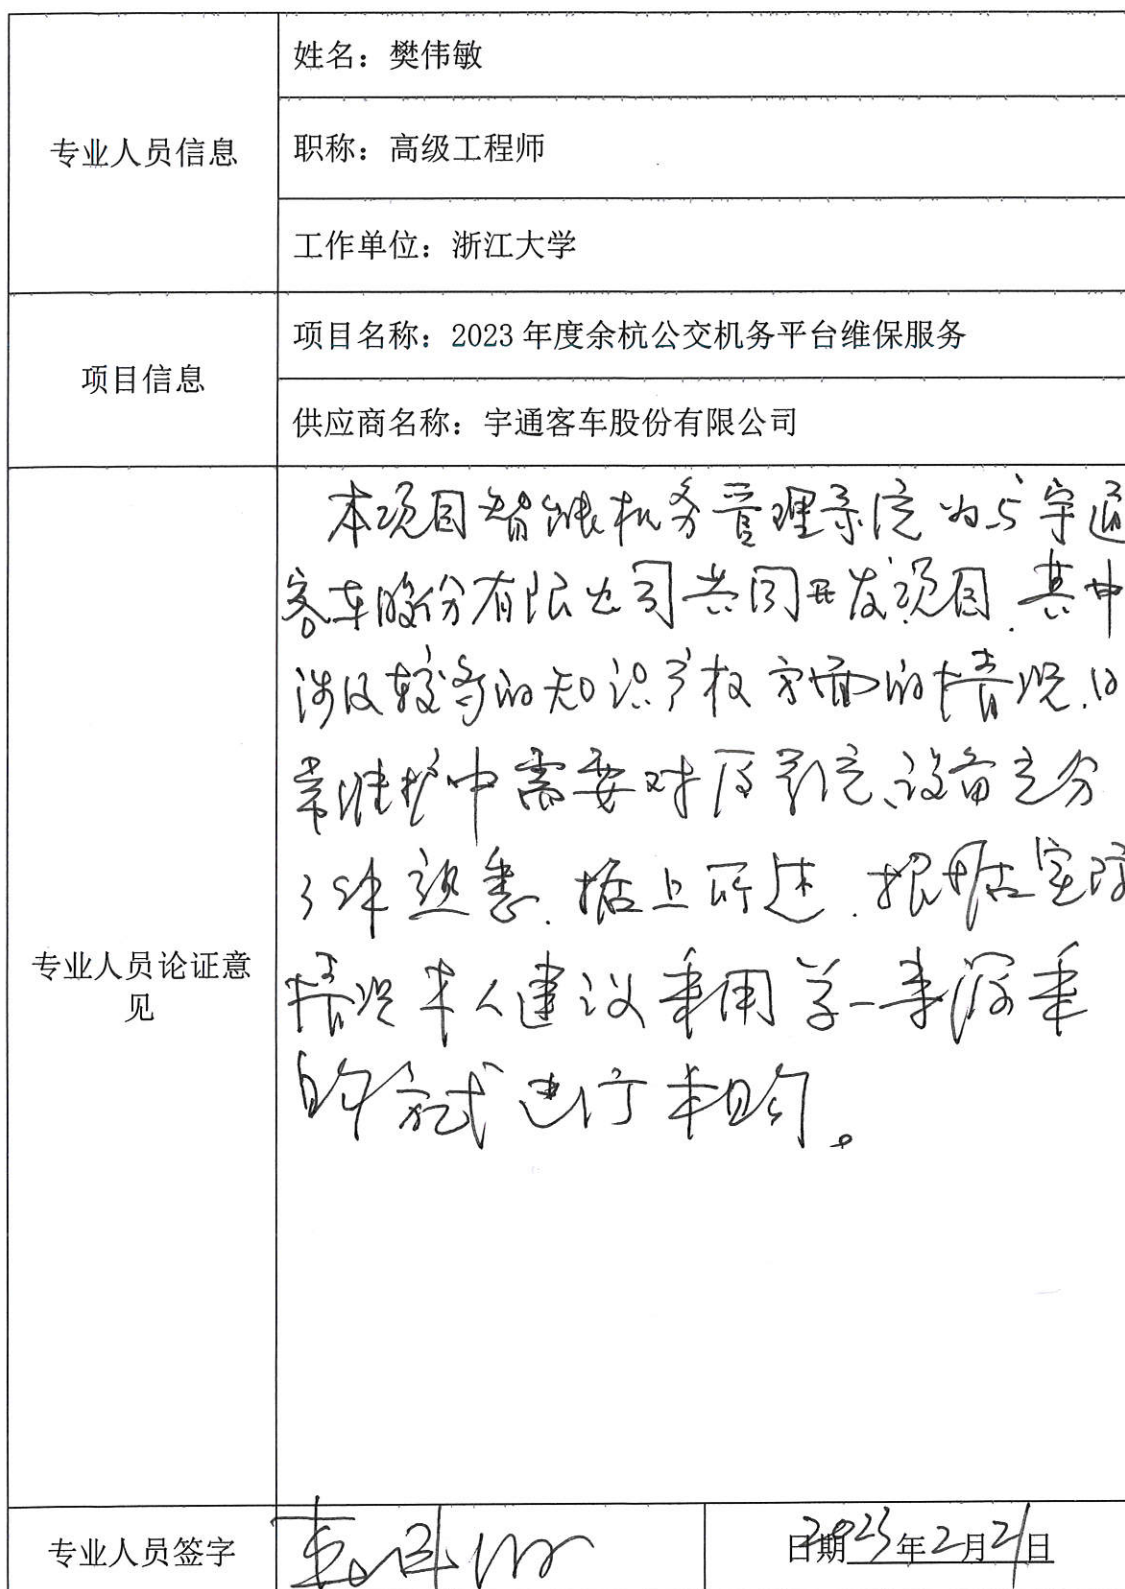 专业人员信息
姓名：樊伟敏
职称：高级工程师
工作单位：浙江大学
项目信息
项目名称：2023年度余杭公交机务平台维保服务
供应商名称：宇通客车股份有限公司
专业人员论证意见
本项目智能机务管理系统为与宇通
客车股份有限公司共同开发项目.其中
涉及较多的知识产权方面的情况.日
常维护中需要对原系统、设备充分
了解熟悉.据上所述.根据实际
情况本人建议采用单一来源采
的方式进行采购。
专业人员签字
日期2023年2月21日